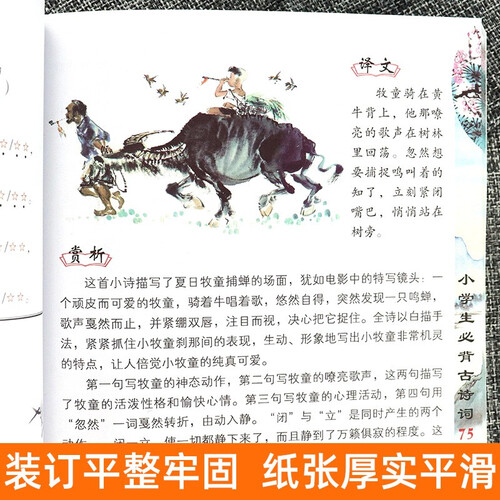 译文
牧童骑在黄
牛背上，他那嘹
亮的歌声在树林
里回荡。忽然想
要捕捉鸣叫着的
知了，立刻紧闭
嘴巴，悄悄站在
树旁。
赏析
这首小诗描写了夏日牧童捕蝉的场面，犹如电影中的特写镜头：一
个顽皮而可爱的牧童，骑着牛唱着歌，悠然自得，突然发现一只鸣蝉，
歌声戛然而止，并紧绷双唇，注目而视，决心把它捉住。全诗以白描手
法，紧紧抓住小牧童刹那间的表现，生动、形象地写出小牧童非常机灵
的特点，让人倍觉小牧童的纯真可爱。
第一句写牧童的神态动作，第二句写牧童的嘹亮歌声，这两句描写
了牧童的活泼性格和愉快心情。第三句写牧童的心理活动，第四句用
“忽然”一词戛然转折，由动入静。“闭”与“立”是同时产生的两个
动作，一闭一立，使一切都静下来了，直静到了万籁俱寂的程度。这
小学生必背古诗词
75
装订平整牢固 纸张厚实平滑